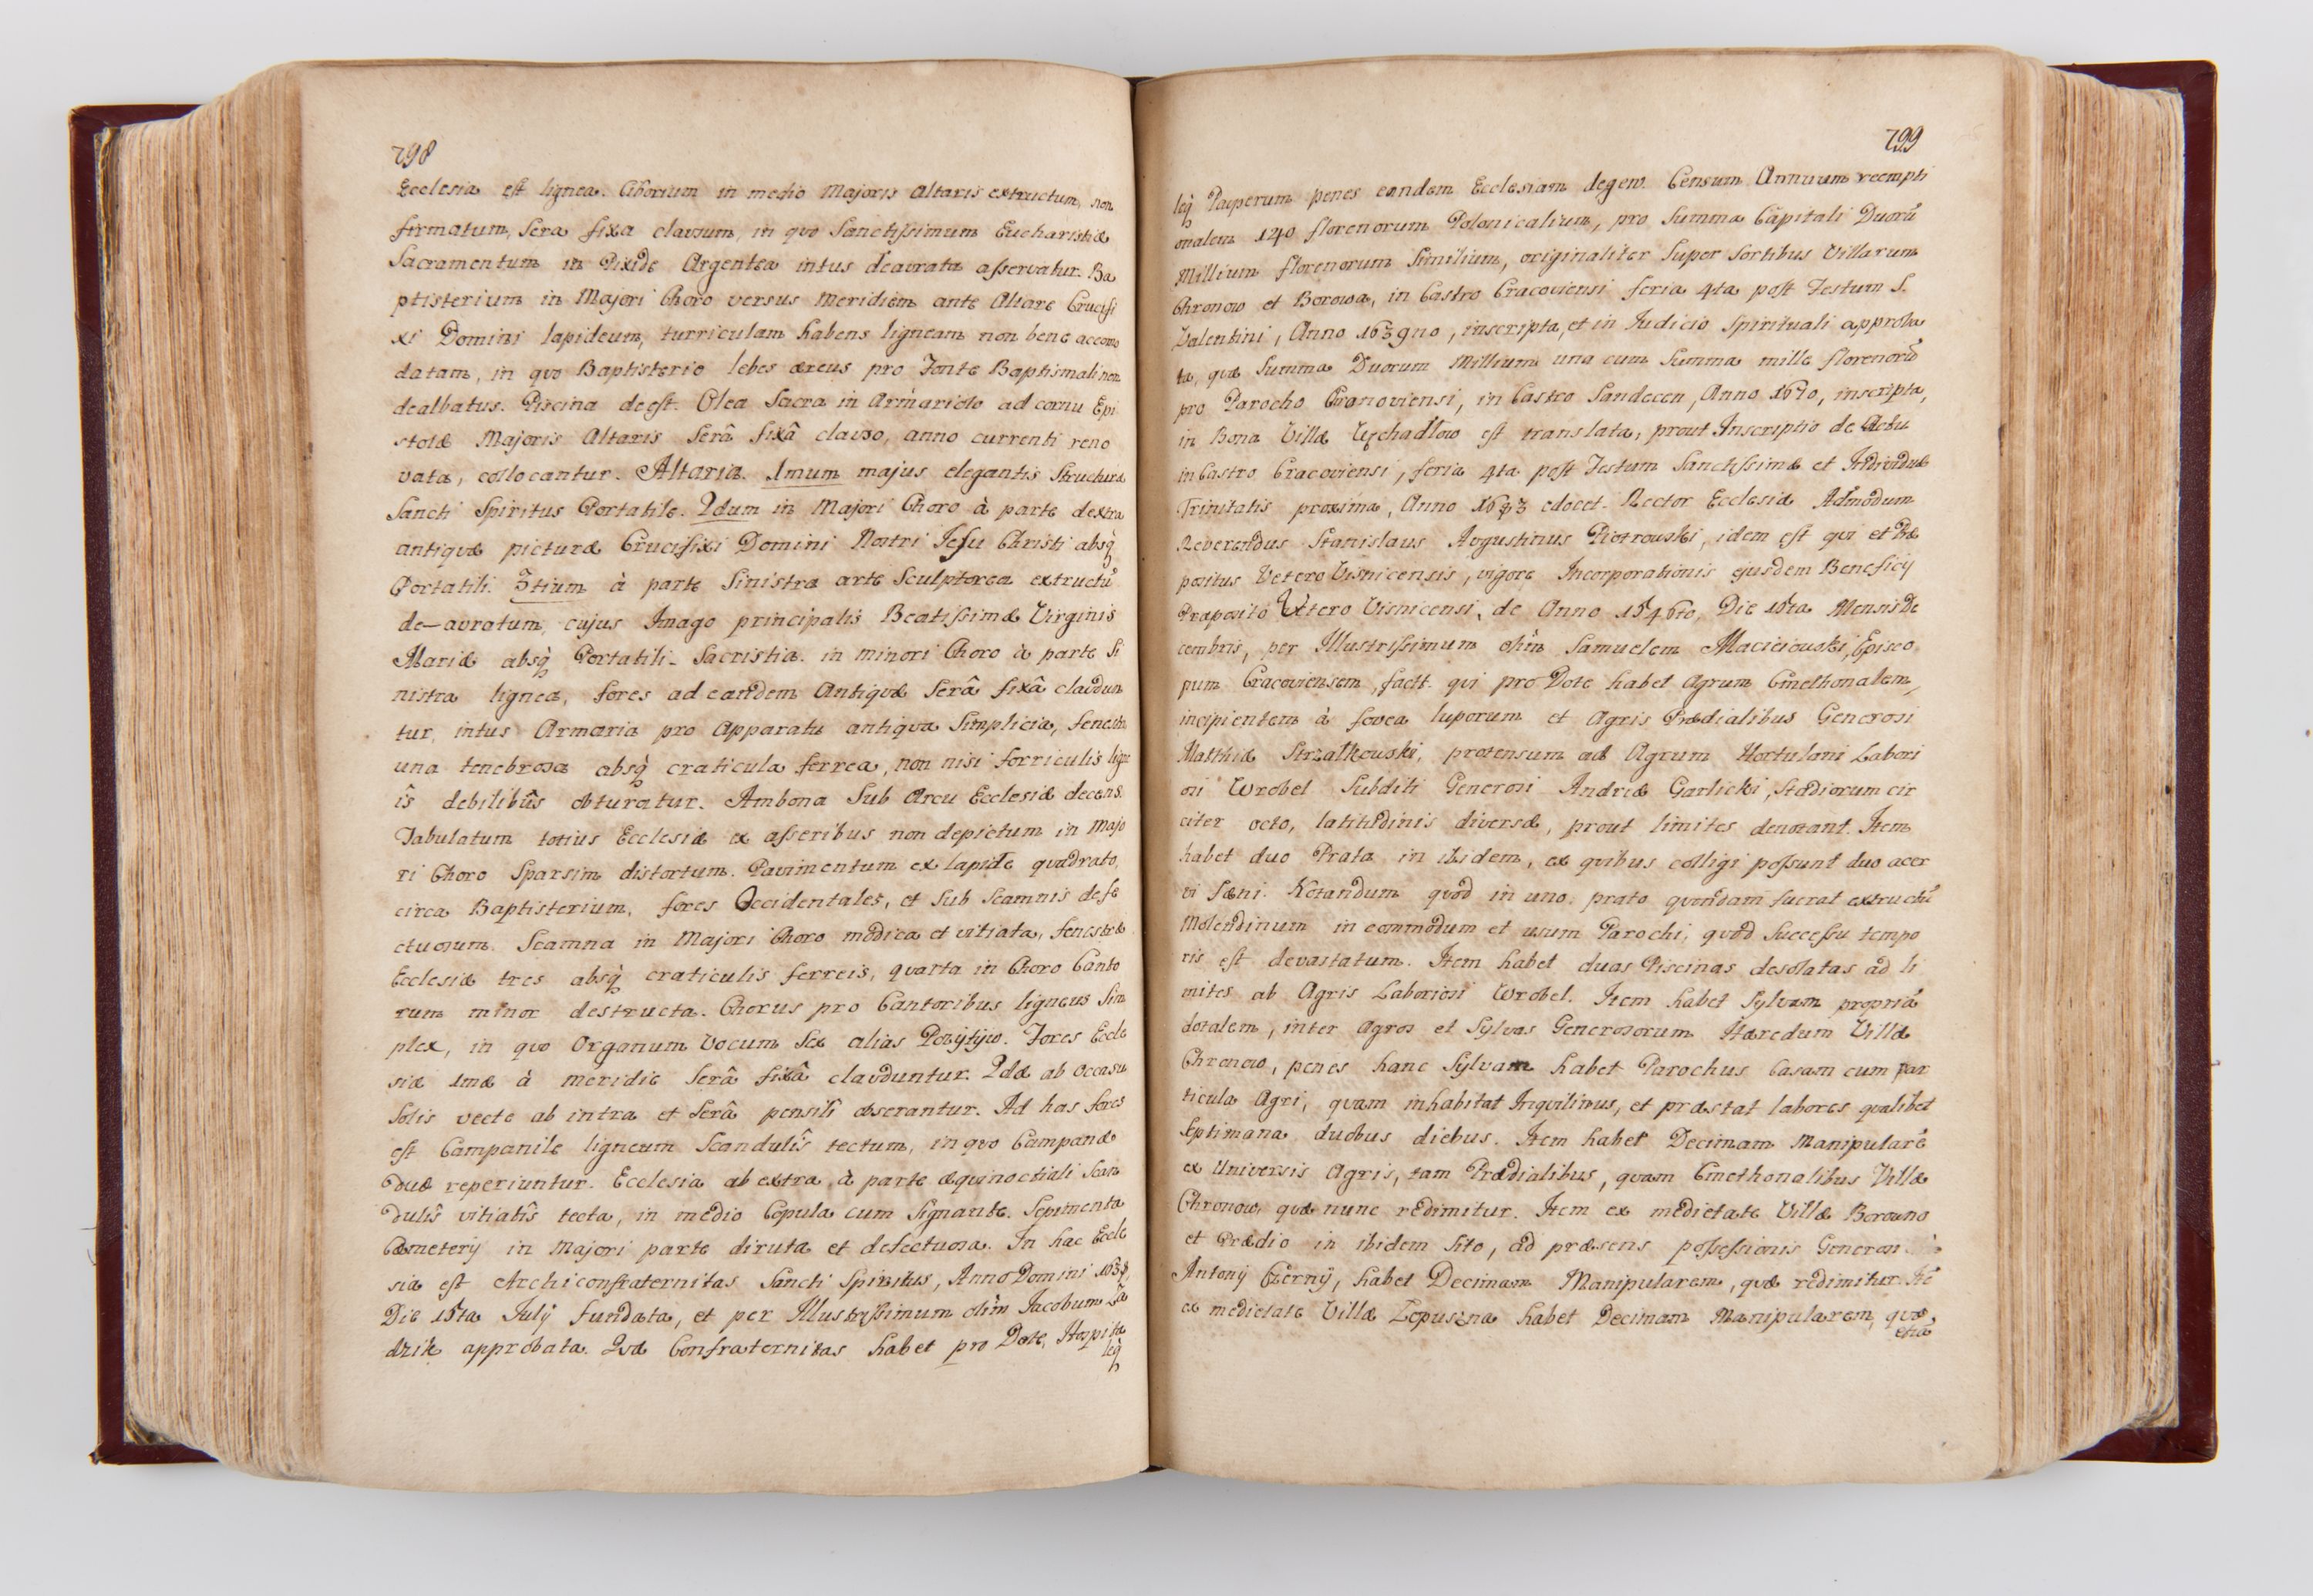 798
Ecclesia est lignea. Ciborium in medio Majoris Altaris extructum, non
firmatum, sera fixa clausum, in quo Sanctissimum Eucharistiæ
Sacramentum in Pixide Argentea intus deaurata asservatur. Ba
ptisterium in Majori Choro versus Meridiem ante Altare Crucifi
xi Domini lapideum, turriculam habens ligneam non bene accomo
datam, in quo Baptisterio lebes æreus pro Fonte Baptismali non
dealbatus. Piscina deest. Olea Sacra in Armariolo ad cornu Epi
stolæ Majoris Altaris Serâ fixâ clauso, anno currenti reno
vata, collocantur. Altaria. 1mum majus elegantis Structura
Sancti Spiritus Portatile. 2dum in Majori Choro à parte dextra
antiquæ picturæ Crucifixi Domini Nostri Jesu Christi absq̀
Portatili. 3tium à parte Sinistra arte Sculptorea extructũ
de–auratum, cujus Imago principalis Beatissimæ Virginis
Mariæ absq̀ Portatili. Sacristia. in minori Choro à parte Si
nistra lignea, fores ad eandem Antiquæ Serâ fixâ claudun
tur, intus Armaria pro Apparatu antiqua Simplicia, fenestra
una tenebrosa absq̀ craticula ferrea, non nisi ferriculis ligne
îs debilibûs obturatur. Ambona Sub Arcu Ecclesiæ decens.
Tabulatum totius Ecclesiæ ex asseribus non depictum in Majo
ri Choro Sparsim distortum. Pavimentum ex lapide quadrato,
circa Baptisterium, fores Occidentales, et Sub Scamnis defe
ctuosum. Scamna in Majori Choro modica et vitiata, fenestræ
Ecclesiæ tres absq̀ craticulis ferreis, quarta in Choro Canto
rum minor destructa. Chorus pro Cantoribus ligneus Sim
plex, in quo Organum Vocum Sex alias Pozÿtÿw. Fores Eccle
siæ 1mæ à meridie Serâ fixâ clauduntur. 2dæ ab occasu
Solis vecte ab intra et Serâ pensilî obserantur. Ad has fores
est Campanile ligneum Scandulîs tectum, in quo Campanæ
duæ reperiuntur. Ecclesia ab extra à parte æquinoctiali Scan
dulîs vitiatîs tecta, in medio Copula cum Signante. Sepimenta
Cæmeterij in Majori parte diruta et defectuosa. In hac Eccle
sia est Archiconfraternitas Sancti Spiritus, Anno Domini 1638,
Die 15ta Julÿ fundata, et per Illustrissimum olim Jacobum Za
dzik approbata. Quæ Confraternitas habet pro Dote, Hospita
leq̀
799
leq̀ Pauperum penes eandem Ecclesiam degen. Censum Annuum reempti
onalem 140 florenorum Polonicalium, pro Summa Capitali Duorũ
Millium florenorum Similium, originaliter Super Sortibus Villarum
Chronow et Borowa, in Castro Cracoviensi feria 4ta post Festum S.
Valentini, Anno 1639no, inscripta, et in Judicio Spirituali approba
ta, quæ Summa Duorum Millium una cum Summa mille florenorũ
pro Parocho Chronoviensi, in Castro Sandecen, Anno 1670, inscripta,
in Bona Villæ est translata, prout Inscriptio de Actu
in Castro Cracoviensi, feria 4ta post Festum Sanctissimæ et Individuæ
Trinitatis proxima, Anno docet. Rector Ecclesiæ Admodum
Reverendus Stanislaus Augustinus Piotrowski, idem est qui et Præ
positus Vetero Visnicensis, vigore Incorporationis ejusdem Beneficÿ
Præposito Vetero Visnicensi, de Anno 1546to, Die Mensis De
cembris, per Illustrissimum olim Samuelem Macieiowski, Episco
pum Cracoviensem, fact. qui pro Dote habet Agrum Cmethonalem,
incipientem à fovea luporum et Agris Prædialibus Generosi
Matthiæ Strzałkowski, protensum ad Agrum Hortulani Labori
osi Wrobel Subditi Generosi Andreæ Garlicki, Stadiorum cir
citer octo, latitudinis diversæ, prout limites denotant. Item
habet duo Prata in ibidem, ex quibus colligi possunt duo acer
vi Fæni. Notandum quod in uno prato quondam fuerat extructũ
Molendinum in commodum et usum Parochi, quod Successu tempo
ris est devastatum. Item habet duas Piscinas desolatas ad li
mites ab Agris Laboriosi Wrobel. Item habet Sylvam propriã
dotalem, inter Agros et Sylvas Generosorum Hæredum Villæ
Chronow, penes hanc Sylvam habet Parochus Casam cum par
ticula Agri, quam inhabitat Inquilinus, et præstat labores qualibet
Septimana duobus diebus. Item habet Decimam Manipularẽ
ex Universis Agris, tam Prædialibus, quam Cmethonalibus Villæ
Chronow, quæ nunc redimitur. Item ex medietate Villæ Borowno
et Prædio in ibidem Sito, ad præsens possessionis Generosi
Antonij Czerny, habet Decimam Manipularem, quæ redimitur. Itẽ
ex medietate Villæ Łopuszna habet Decimam Manipularem, quæ,
etiã